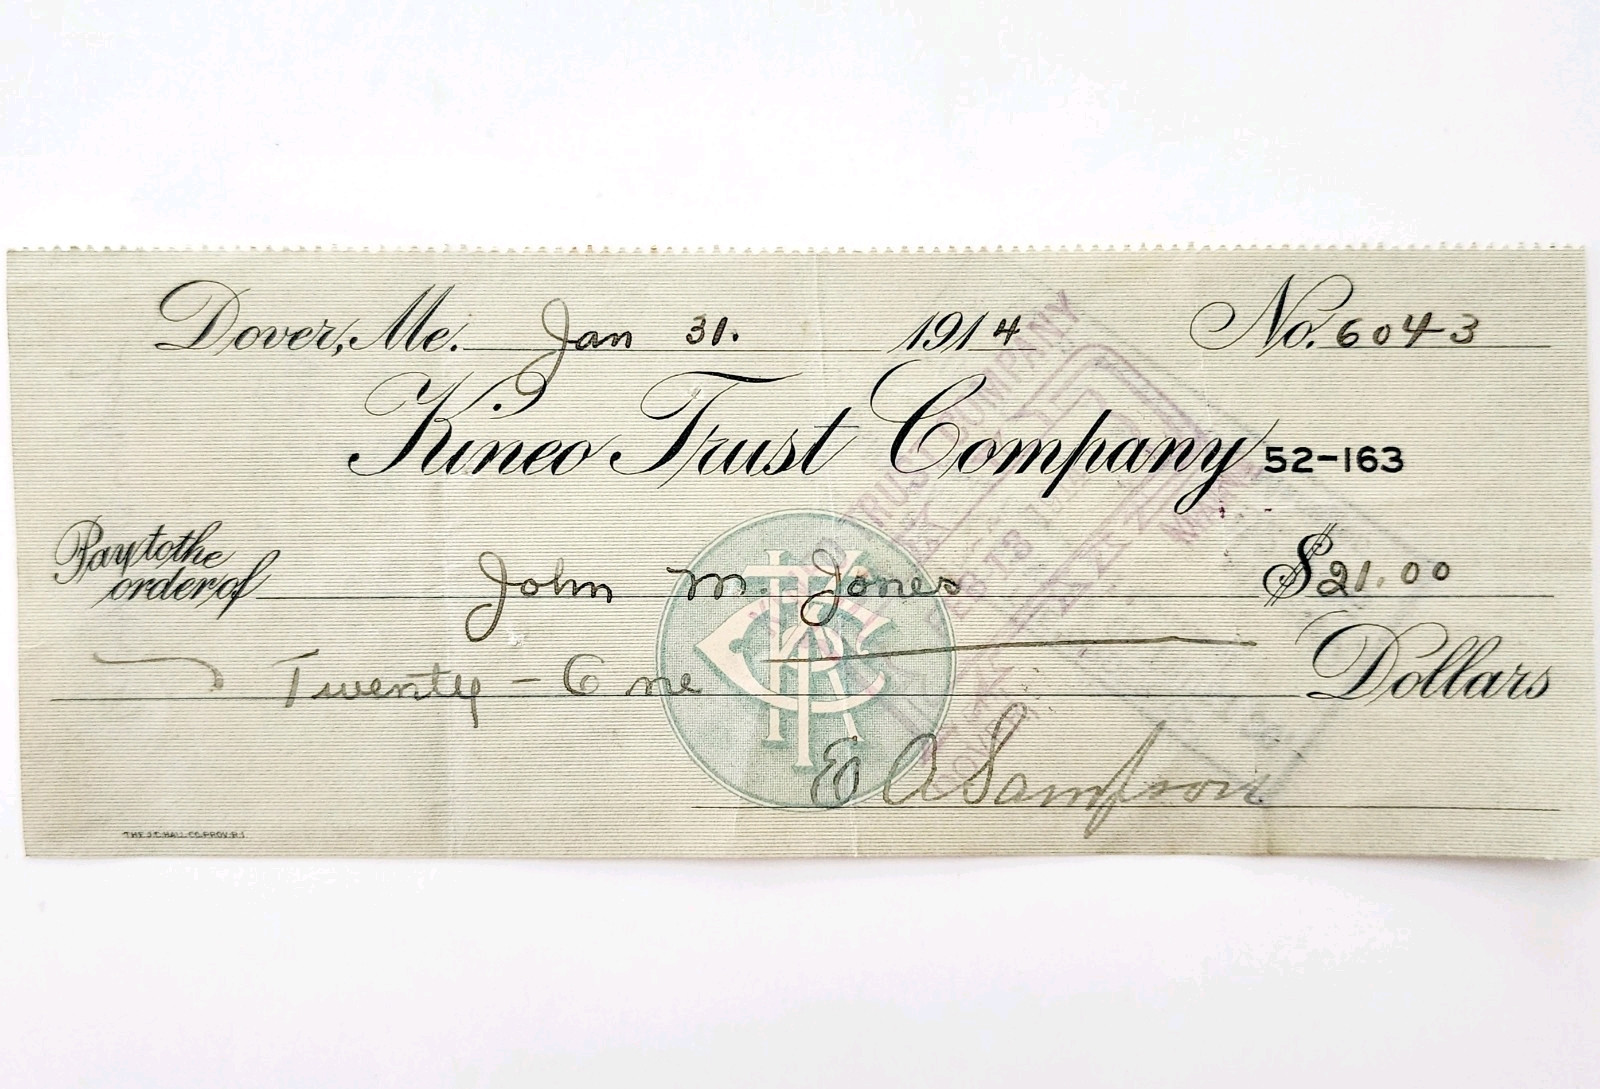 Dover, Me. Jan 31. 1914 No. 6043
Kineo Trust Company 52-163
Pay to the order of John M. Jones $21.00
Twenty-One Dollars
E A Sampson
THE J.C. HALL CO. PROV. R.I.
TRUST COMPANY